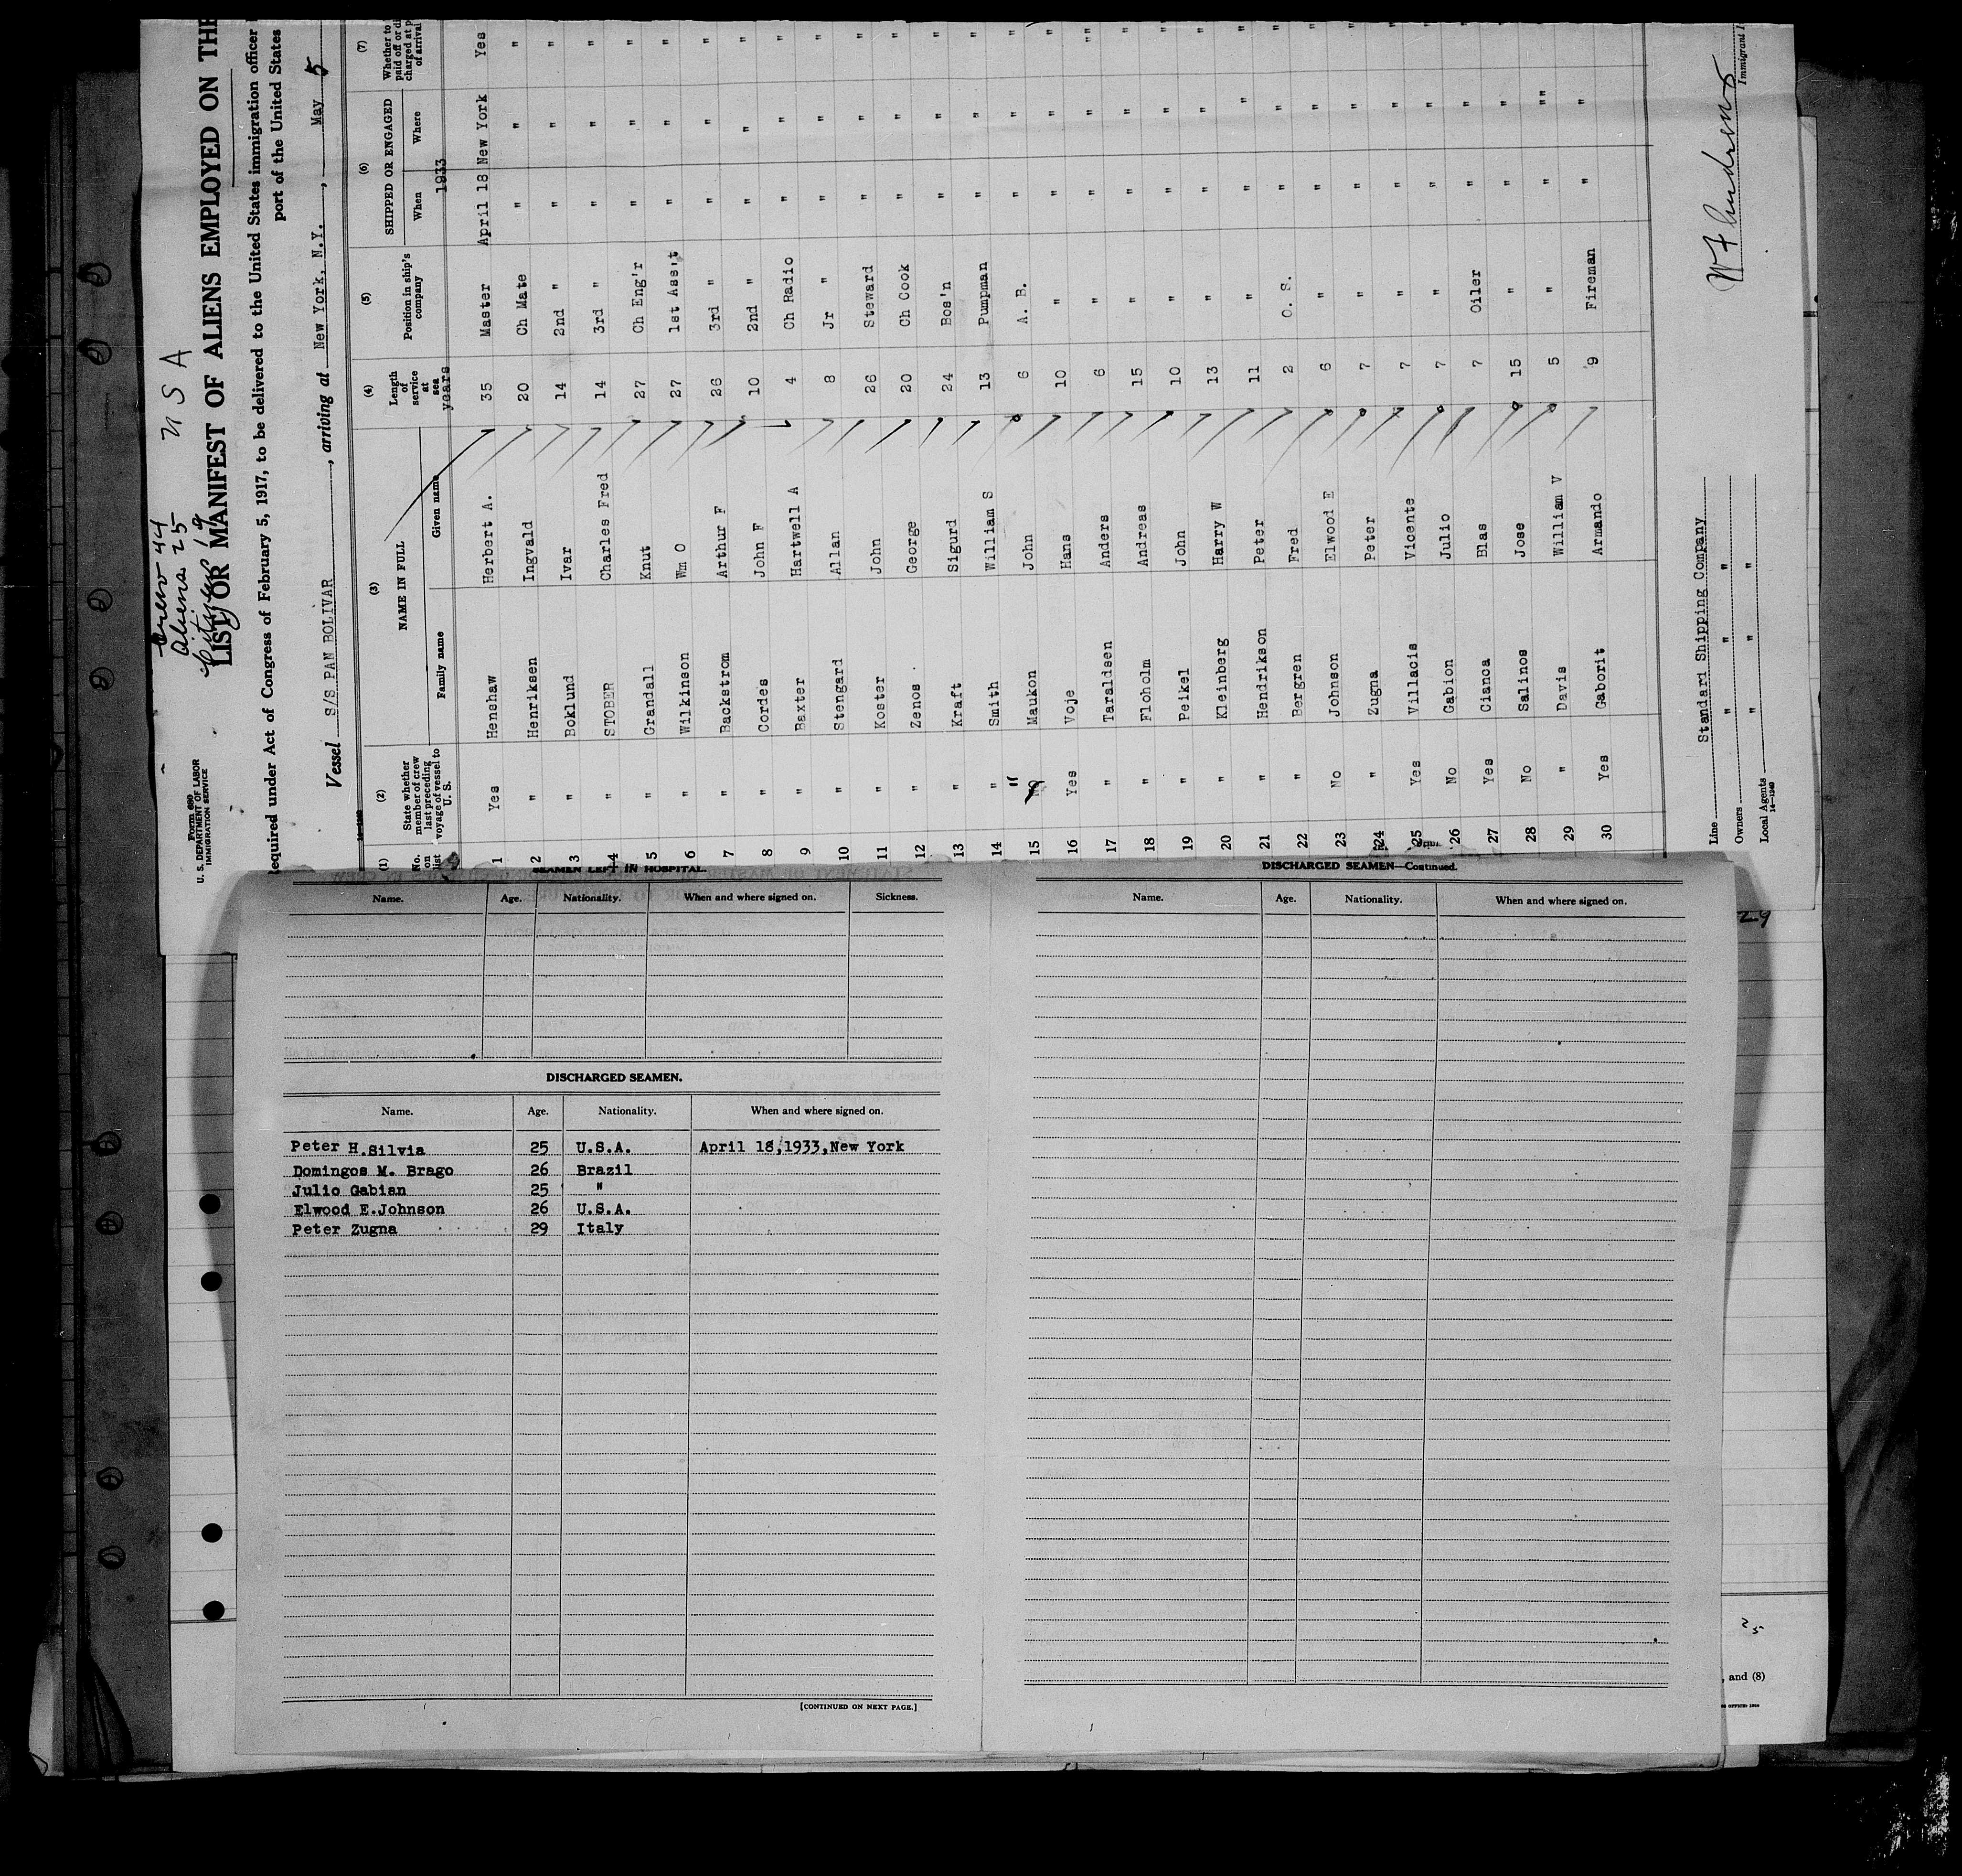 Crew 44
Aliens 25
Citizens 19
U S A
Form 680
U. S. DEPARTMENT OF LABOR
IMMIGRATION SERVICE
LIST OR MANIFEST OF ALIENS EMPLOYED ON THE
equired under Act of Congress of February 5, 1917, to be delivered to the United States immigration officer
port of the United States
Vessel S/S PAN BOLIVAR, arriving at New York, N.Y., May 5
(1) (2) (3) (4) (5) (6) (7)
No. on list
State whether member of crew last preceding voyage of vessel to U. S.
NAME IN FULL
Family name Given name
Length of service at sea
years
Position in ship's company
SHIPPED OR ENGAGED
When Where
1933
Whether to
paid off or di
charged at p
of arrival
1 Yes Henshaw Herbert A. 35 Master April 18 New York Yes
2 " Henriksen Ingvald 20 Ch Mate " " "
3 " Boklund Ivar 14 2nd " " " "
4 " STOBER Charles Fred 14 3rd " " " "
5 " Grandall Knut 27 Ch Eng'r " " "
6 " Wilkinson Wm O 27 1st Ass't " " "
7 " Backstrom Arthur F 26 3rd " " " "
8 " Cordes John F 10 2nd " " " "
9 " Baxter Hartwell A 4 Ch Radio " " "
10 " Stengard Allan 8 Jr " " " "
11 " Koster John 26 Steward " " "
12 " Zenos George 20 Ch Cook " " "
13 " Kraft Sigurd 24 Bos'n " " "
14 " Smith William S 13 Pumpman " " "
15 " Maukon John 6 A. B. " " "
16 Yes Voje Hans 10 " " " "
17 " Taraldsen Anders 6 " " " ""
18 " Floholm Andreas 15 " " " "
19 " Peikel John 10 " " " "
20 " Kleinberg Harry W 13 " " " "
21 " Hendrikson Peter 11 " " " "
22 " Bergren Fred 2 O. S. " " "
23 No Johnson Elwood E 6 " " " "
24 " Zugna Peter 7 " " " "
25 Yes Villacis Vicente 7 " " " "
26 No Gabion Julio 7 " " " "
27 Yes Cianca Blas 7 Oiler " " "
28 No Salinos Jose 15 " " " "
29 " Davis William V 5 " " "" "
30 Yes Gaborit Armando 9 Fireman " " "
Line Standard Shipping Company
Owners " " " "
Local Agents " " " "
14—1240
Immigrant I
SEAMEN LEFT IN HOSPITAL.
Name. Age. Nationality. When and where signed on. Sickness.
DISCHARGED SEAMEN.
Name. Age. Nationality. When and where signed on.
Peter H.Silvia 25 U.S.A. April 18,1933,New York
Domingos M. Brago 26 Brazil
Julio Gabian 25 "
Elwood E.Johnson 26 U.S.A.
Peter Zugna 29 Italy
[CONTINUED ON NEXT PAGE.]
DISCHARGED SEAMEN—Continued.
Name. Age. Nationality. When and where signed on.
29
25
, and (8)